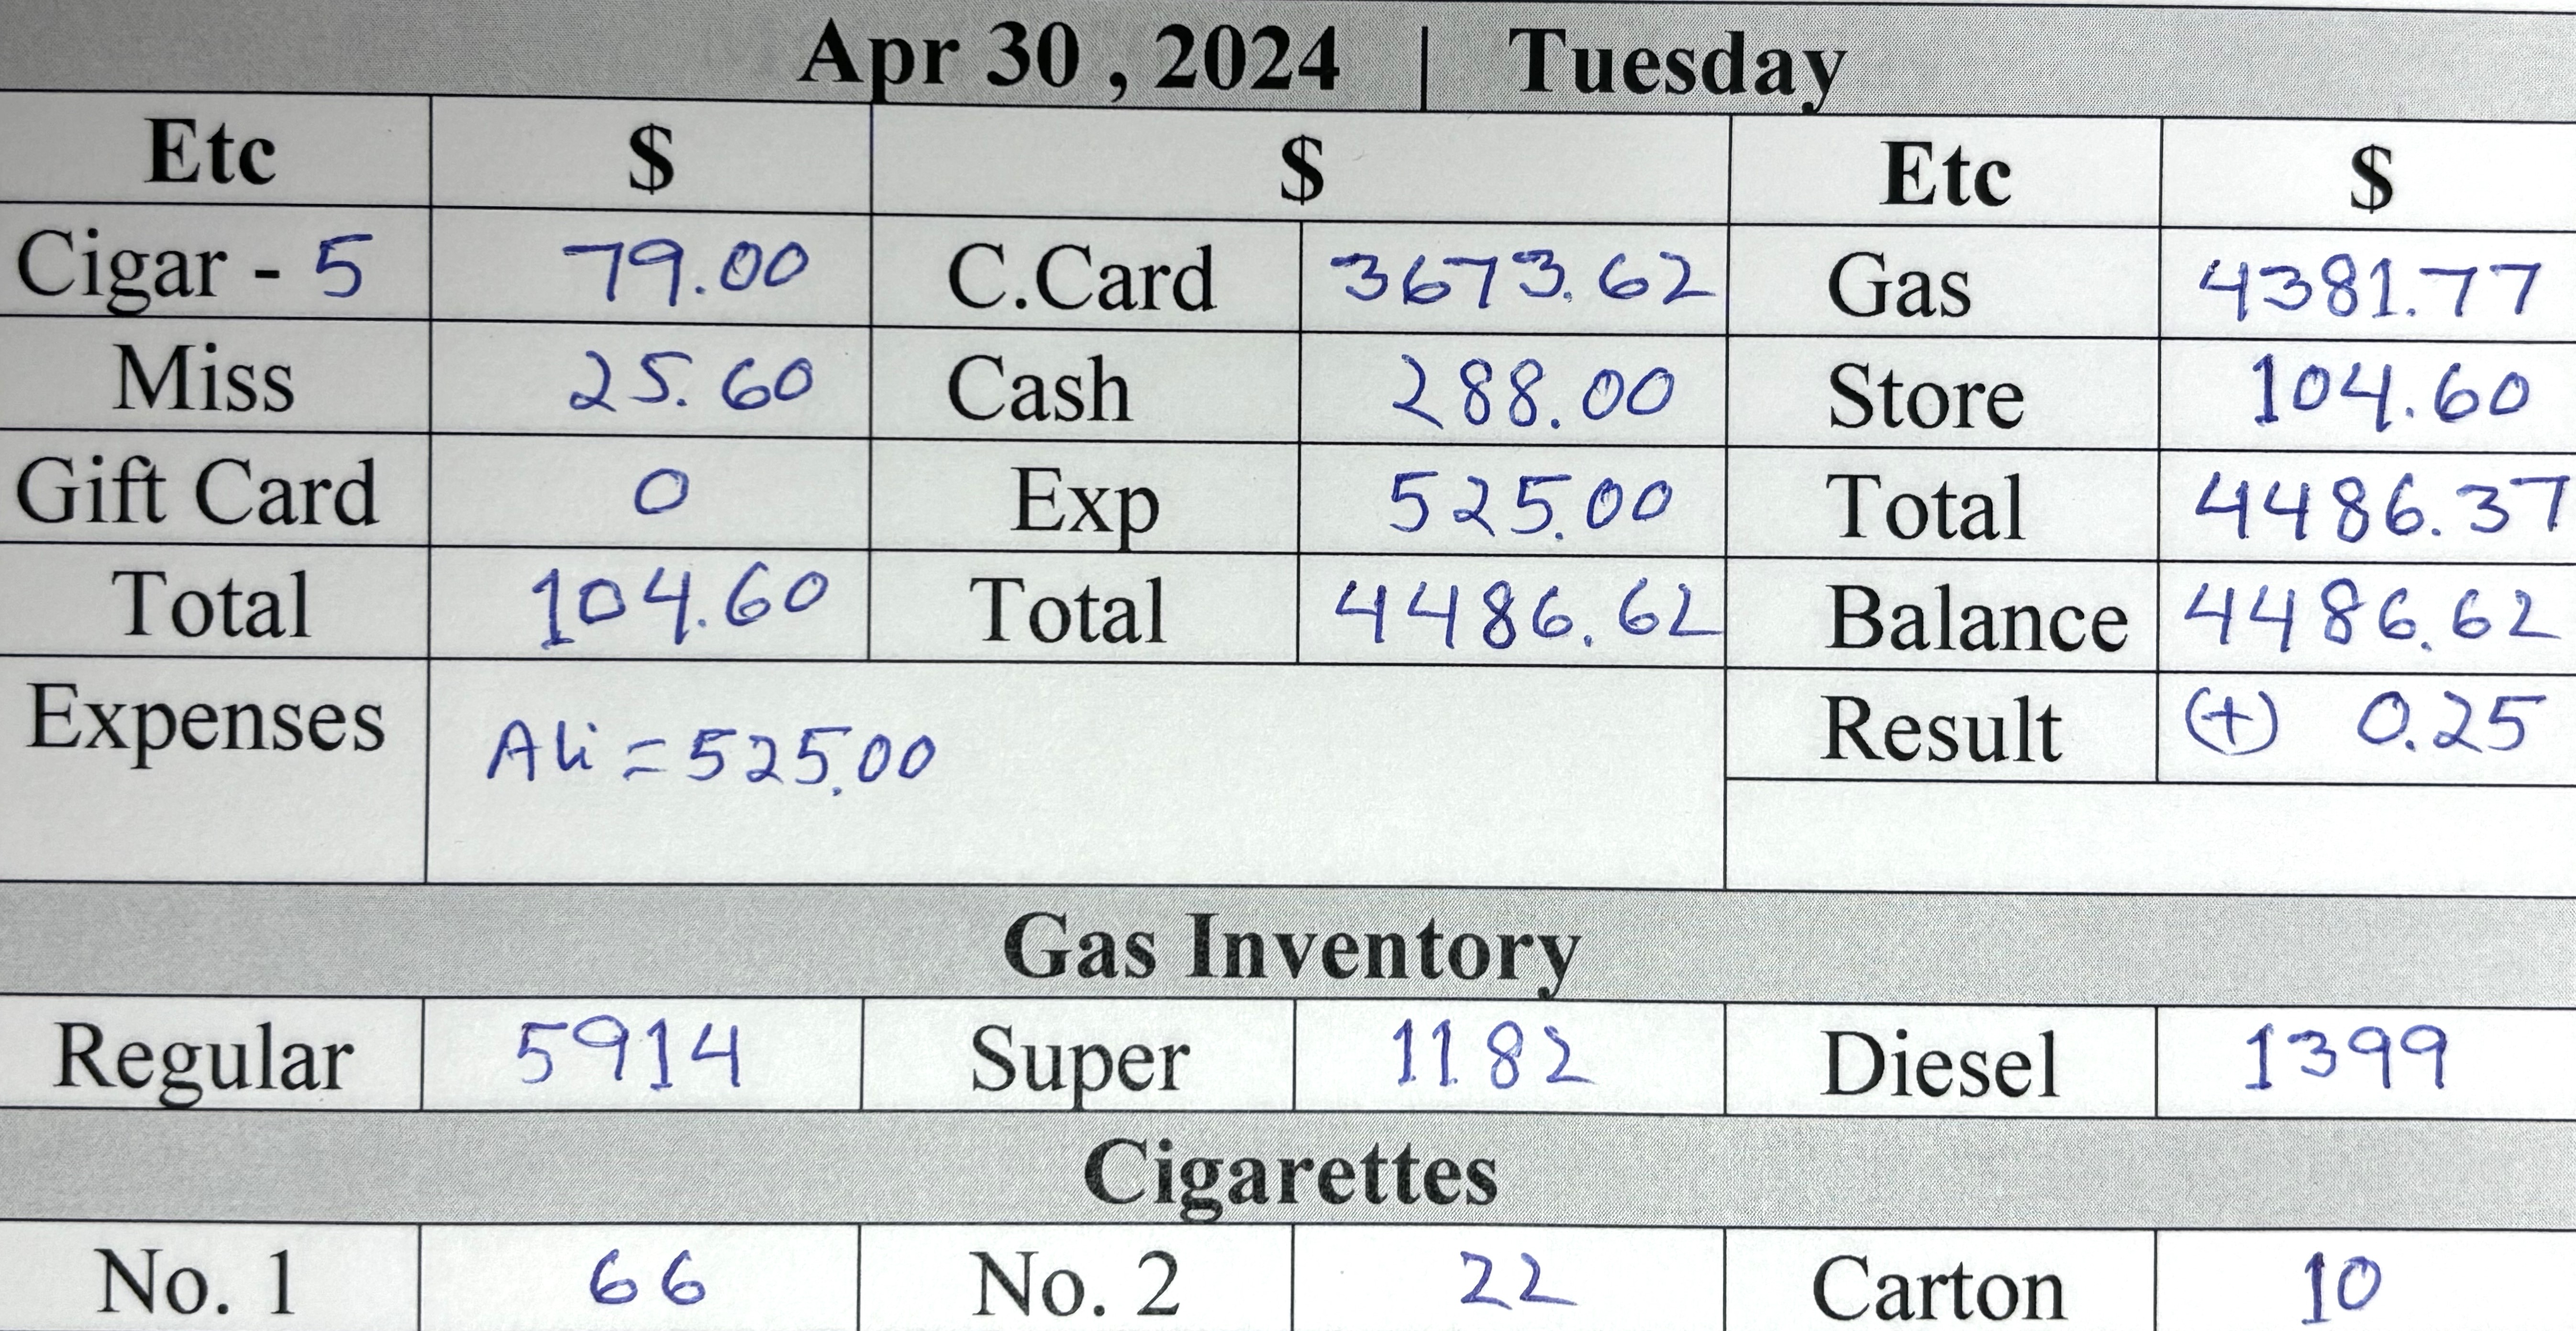 Apr 30 , 2024 | Tuesday
Etc $ $ Etc $
Cigar - 5 79.00 C.Card 3673.62 Gas 4381.77
Miss 25.60 Cash 288.00 Store 104.60
Gift Card 0 Exp 525.00 Total 4486.37
Total 104.60 Total 4486.62 Balance 4486.62
Expenses Ali = 525.00 Result (+) 0.25
Gas Inventory
Regular 5914 Super 1182 Diesel 1399
Cigarettes
No. 1 66 No. 2 22 Carton 10